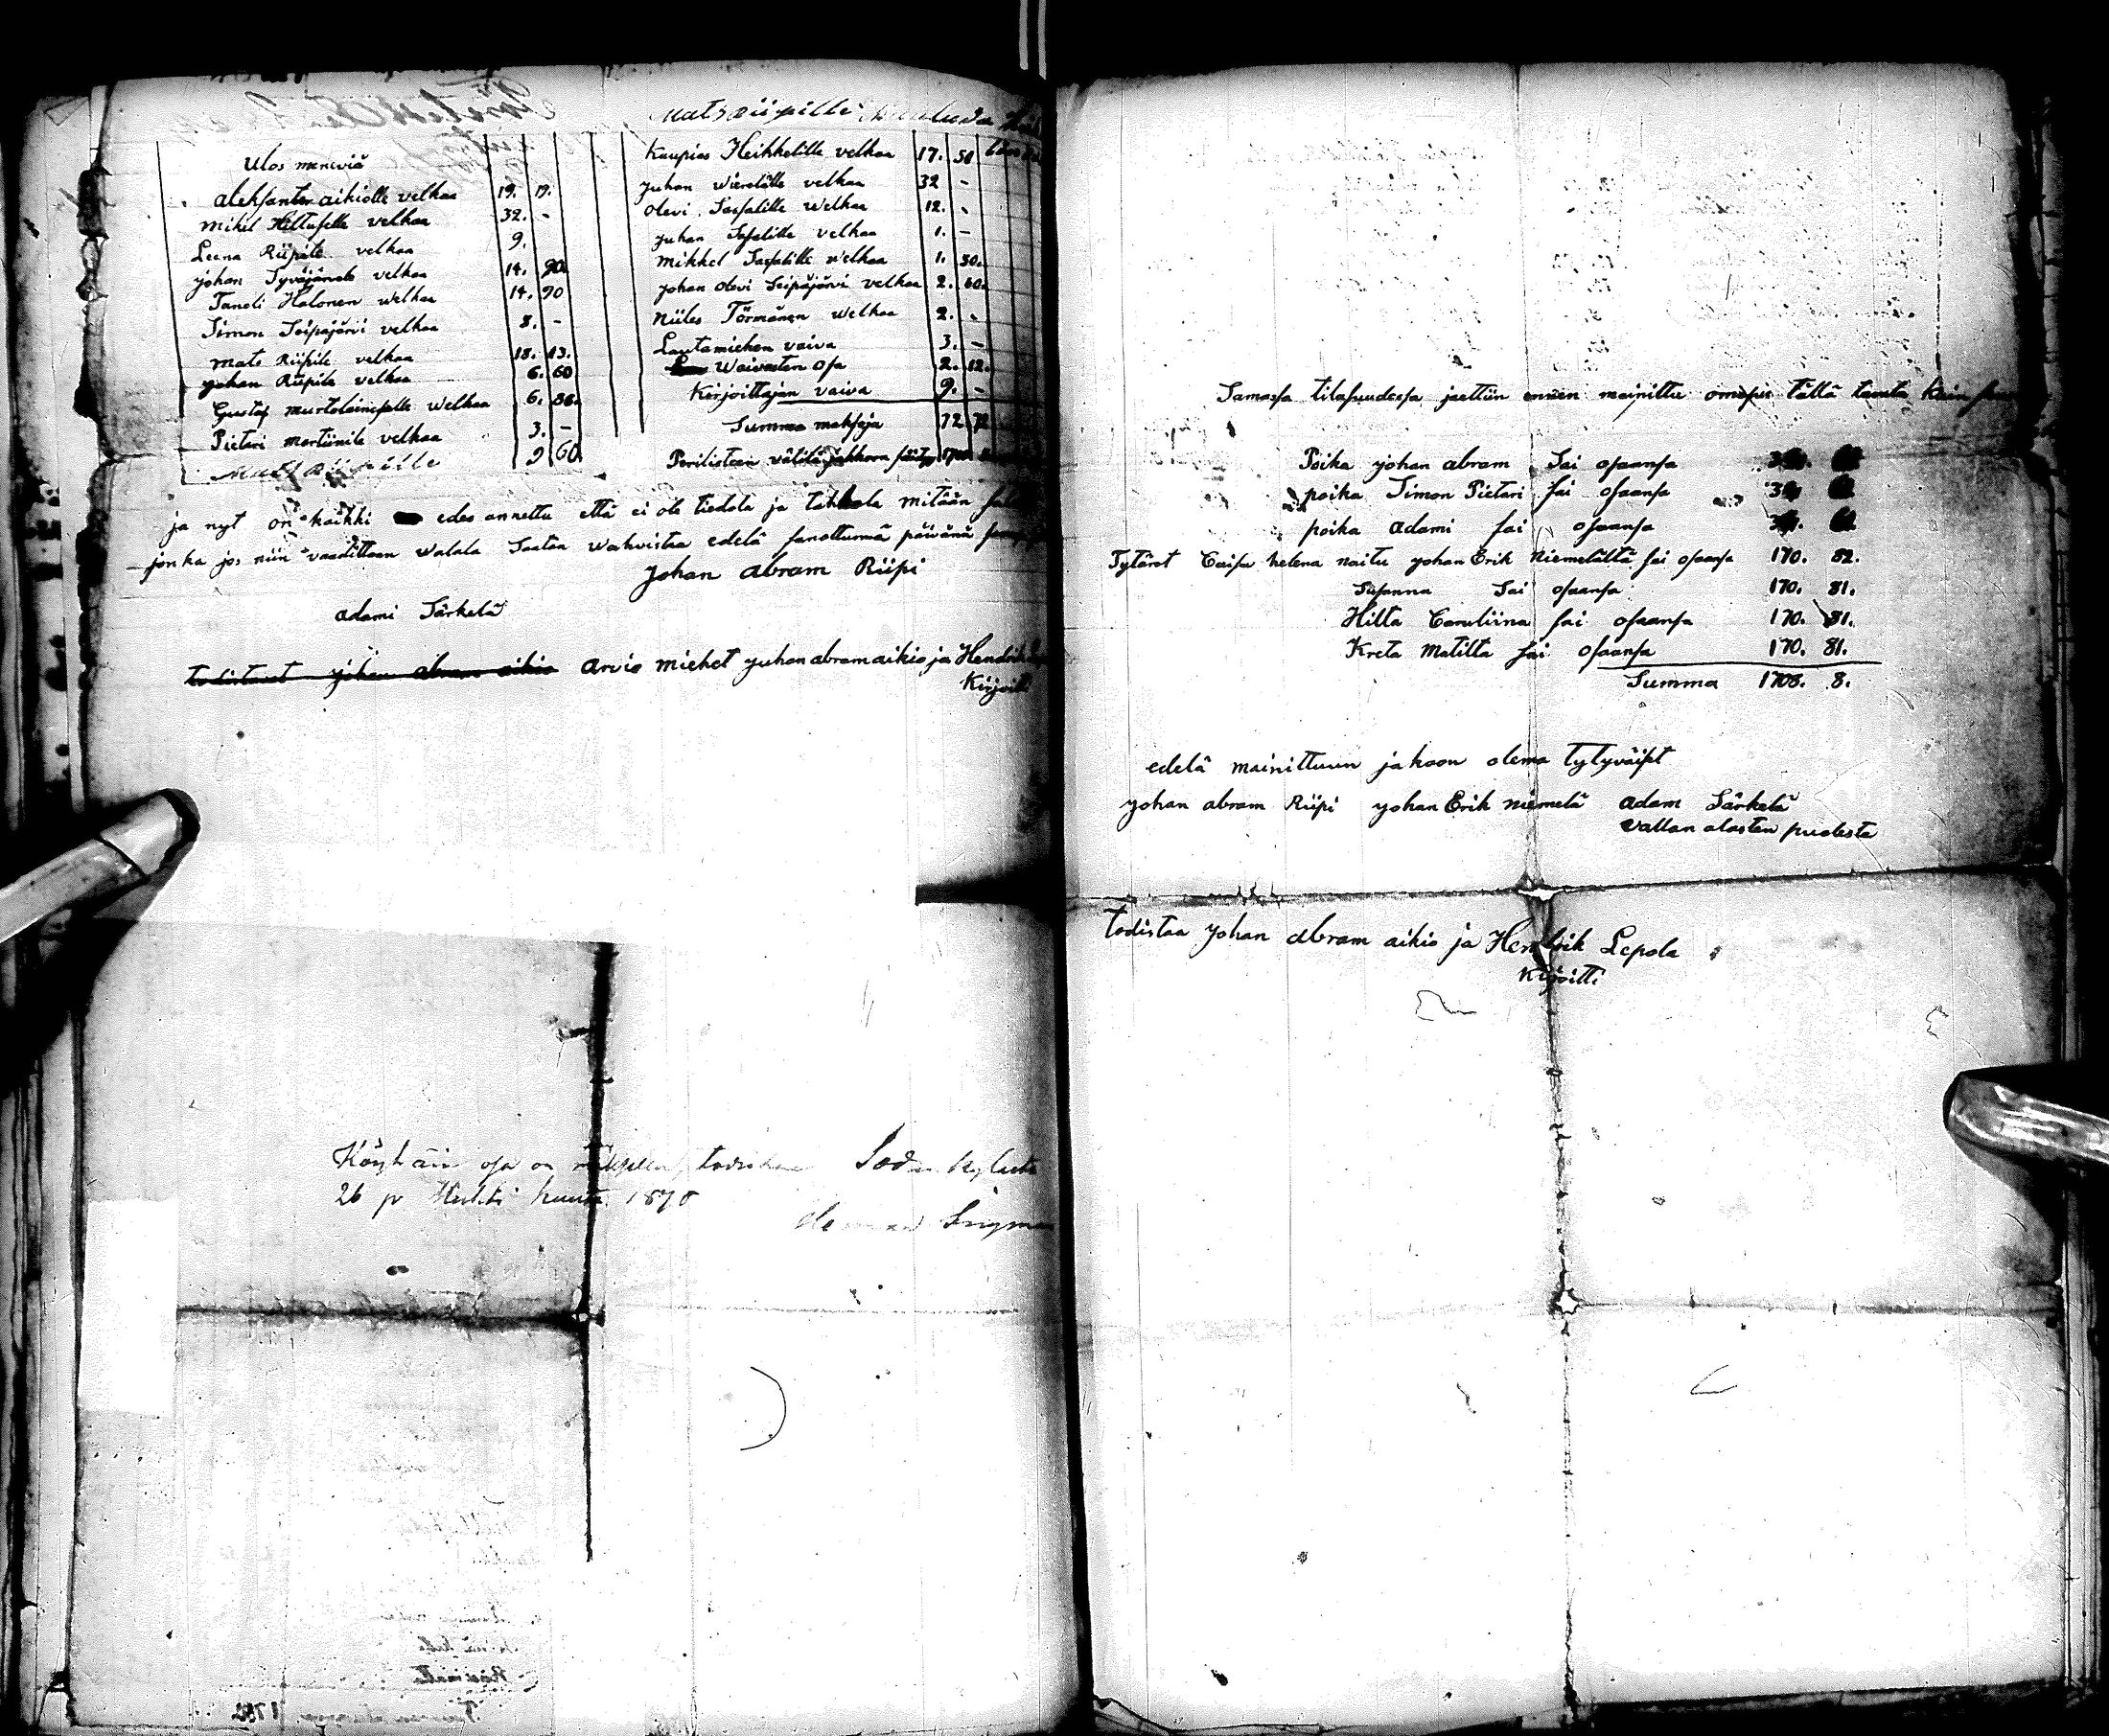 Ulos meneviä
aleksanter aikiolle velkaa 19. 19.
Mikel Hiltuselle velkaa 32. -
Leena Riipile velkaa 9.
johan Syväjärvele velkaa 14. 90
Taneli Halonen welkaa 14. 90
Simon Seipäjärvi velkaa 8. -
Mats Riipile velkaa 18. 13.
johan Riipile velkaa 6. 60
Gustaf murtoleiniselle welkaa 6. 86.
Pietari martiinile velkaa 3. -
Mats Riipille 9 60
Mats Riipille
Kaupias Heikkelille velkaa 17. 51
juhan Wierelälle velkaa 32 -
olevi Sassalille welkaa 12. -
juhan Sassalille velkaa 1. -
Mikkel Sassalille welkaa 1. 50.
johan olevi Seipäjärvi velkaa 2. 60.
Niiles Törmänen welkaa 2. -
Lautamiehen vaiva 3. -
Waivasten osa 2. 12.
Kirjoittajan vaiva 9. -
Summa maksaja
Perilisten välilä jakkoon
ja nyt on kaikki edes annettu että ei ole tiedola ja tahdola mitään
jonka jos niin vaaditaan walala Saatan wahvistaa edelä sanottunna päivänä
johan abram Riipi
adami Särkelä
todistavat johan abram aikio arvio miehet juhan abram aikio ja Hendrik
Kirjoitti
Köyhäin osa on
26 p Huhti kuuta 1870
Samassa tilasuudessa jaettiin ennen mainittu omasus tällä tavala
Poika johan abram Sai osaansa
poika Simon Pietari sai osaansa
poika adami sai osaansa
Tytäret Caisa helena naitu johan Erik Niemelältä sai osaansa 170. 82.
Susanna Sai osaansa 170. 81.
Hilta Caruliina sai osaansa 170. 81.
Kreta Matilta sai osaansa 170. 81.
Summa 1708. 8.
edelä mainittuun jakoon olema tytyväiset
johan abram Riipi johan Erik niemelä adam Särkelä
vallan alasten puolesta
todistaa johan abram aikio ja Hendrik Lepola
Kirjoitti